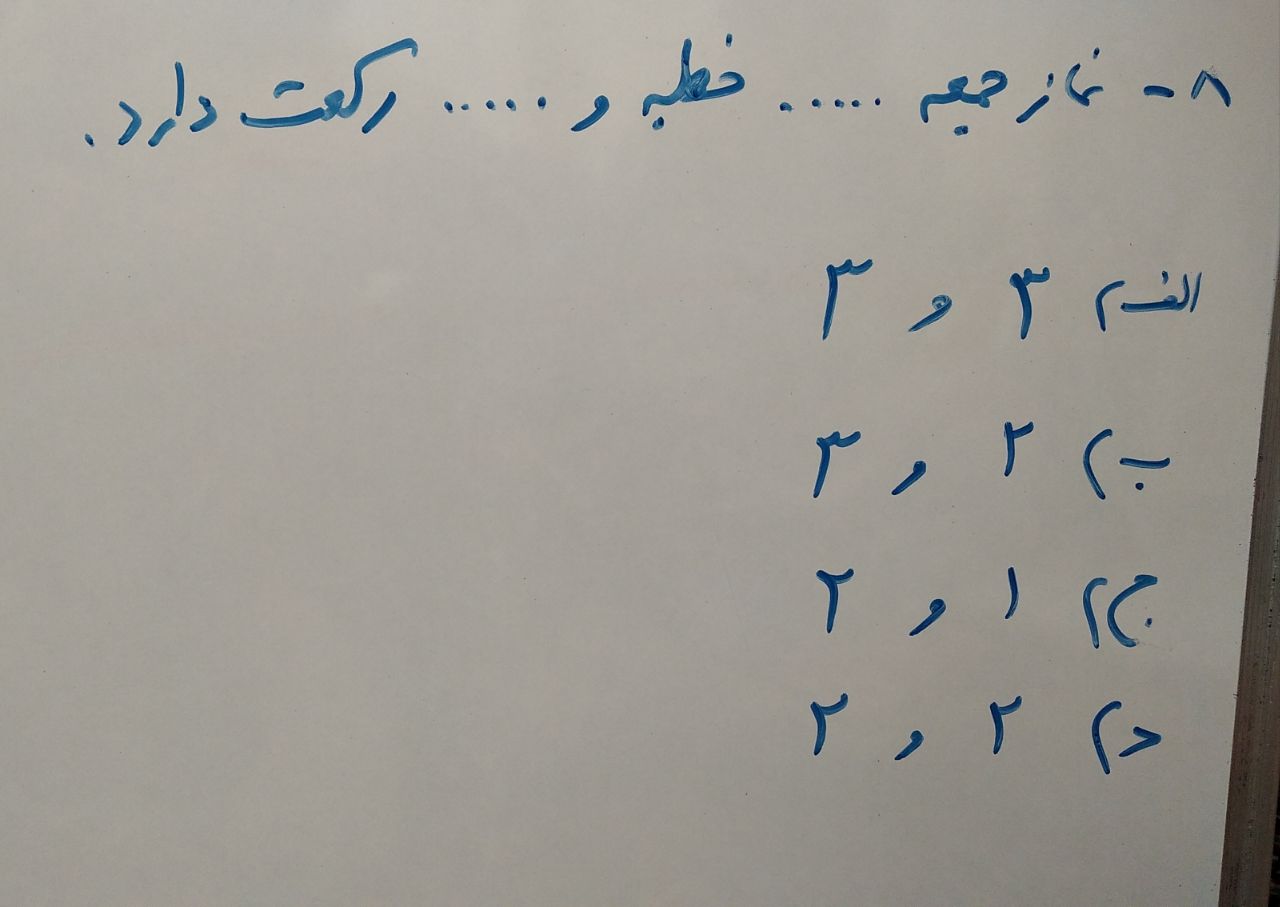 ۸- نماز جمعه ...... خطبه و ...... رکعت دارد.
الف) ۳ و ۳
ب) ۲ و ۳
ج) ۱ و ۲
د) ۲ و ۲